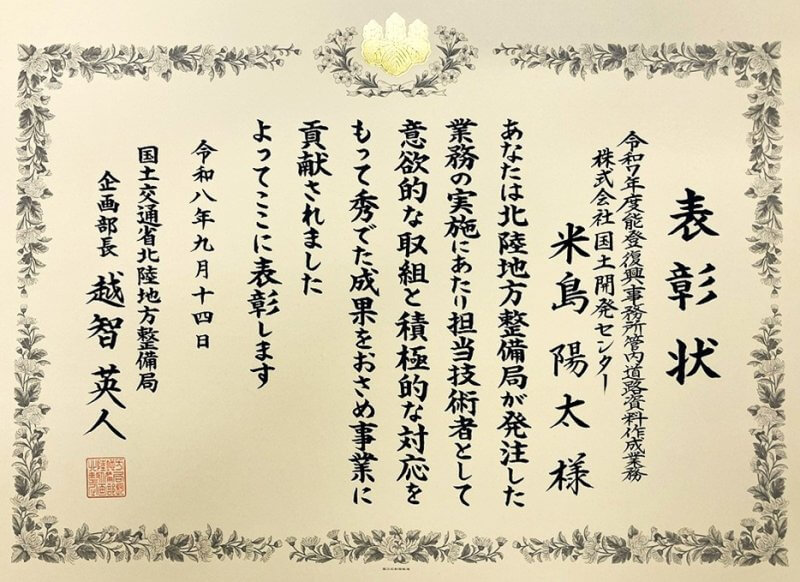 表彰状
令和7年度能登復興事務所管内道路資料作成業務
株式会社国土開発センター
米島陽太様
あなたは北陸地方整備局が発注した
業務の実施にあたり担当技術者として
意欲的な取組と積極的な対応を
もって秀でた成果をおさめ事業に
貢献されました
よってここに表彰します
令和八年九月十四日
国土交通省北陸地方整備局
企画部長 越智英人